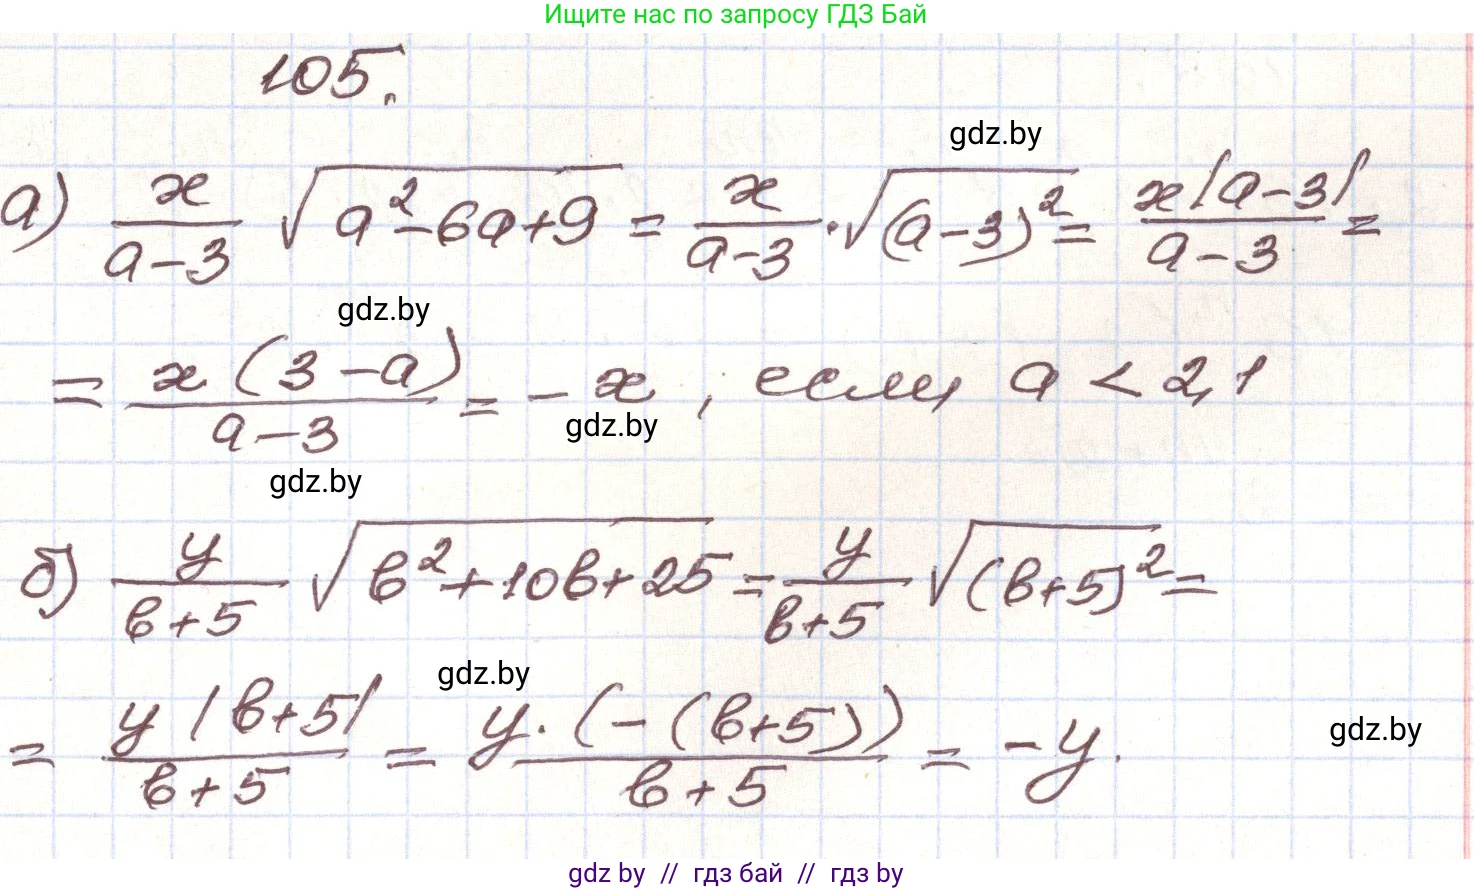 Ищите нас по запросу ГДЗ Бай
105.
gdz.by
а) x/(a-3) √(a²-6a+9) = x/(a-3) · √((a-3)²) = x|a-3|/(a-3) =
gdz.by
= x(3-a)/(a-3) = -x, если a < 2,1
gdz.by
gdz.by
б) y/(b+5) √(b²+10b+25) = y/(b+5) √((b+5)²) =
gdz.by
= y|b+5|/(b+5) = y·(-(b+5))/(b+5) = -y.
gdz.by
gdz by // гдз бай // гдз by